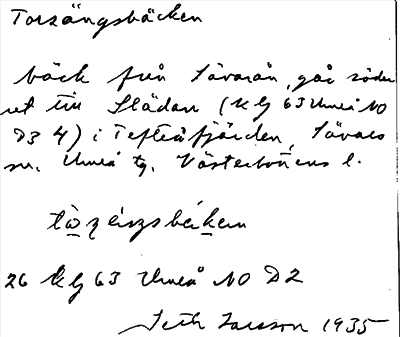 Torsängsbäcken
bäck från Sävarån, går söder
ut till Slädan (kbl 63 Umeå NO
D3 4) i Tefteåfjärden, Sävars
sn. Umeå tg. Västerbottens l.
26 kbl 63 Umeå NO D2
Seth Larsson 1935